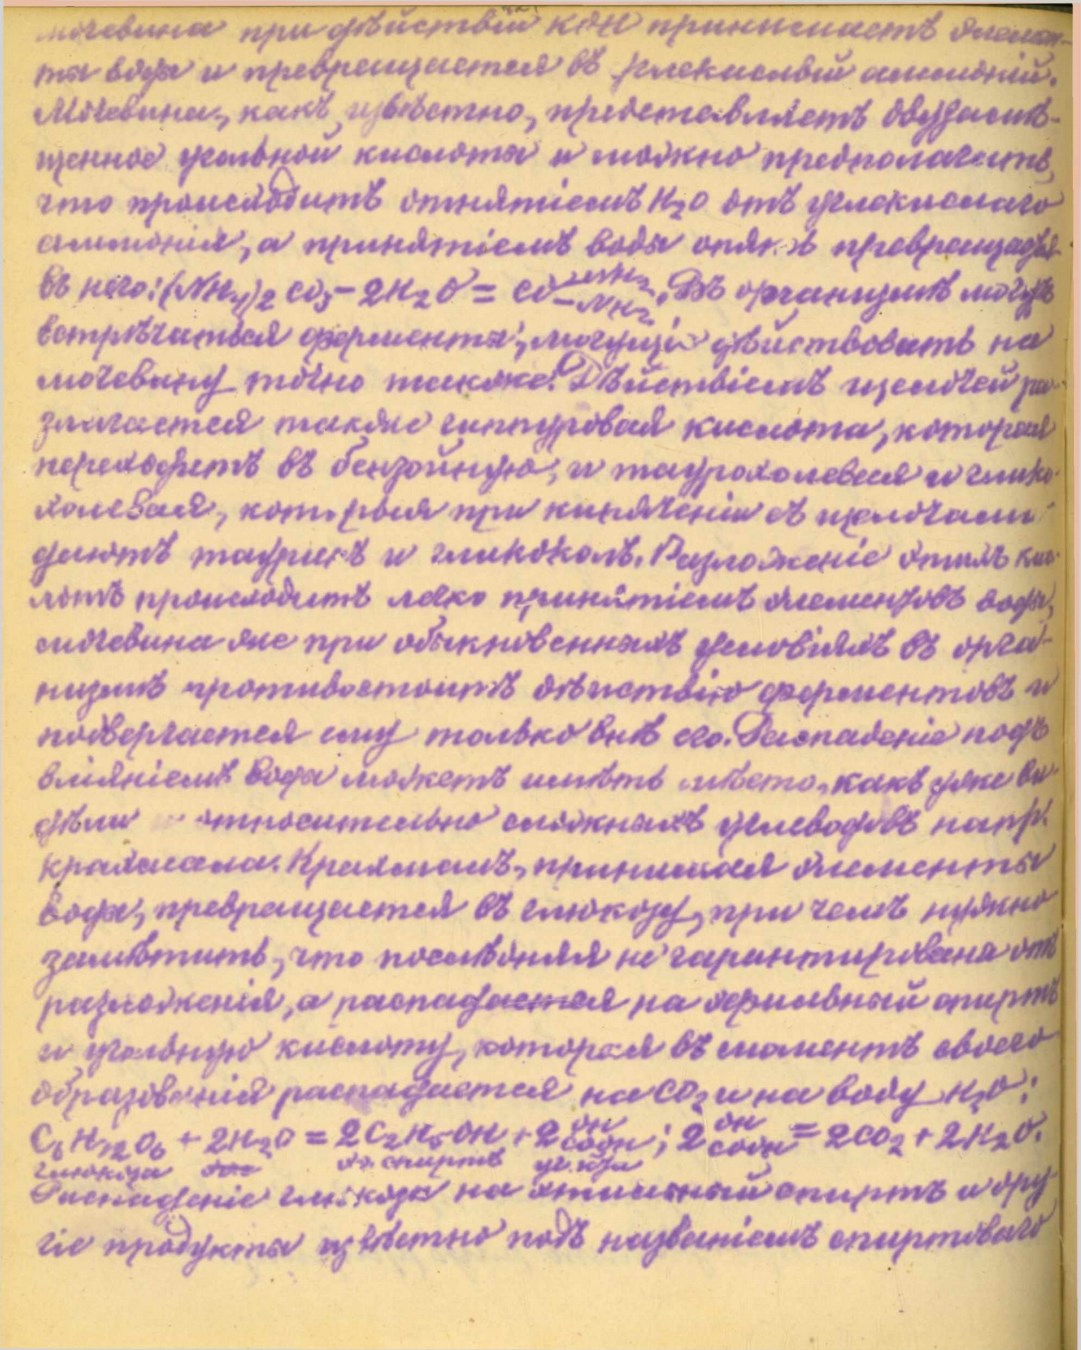 мочевина при дѣйствіи КОН принимаетъ элемен-
ты воды и превращается въ углекислый аммоній.
Мочевина, какъ извѣстно, представляетъ двузамѣ-
щенное угольной кислоты и можно предполагать,
что происходитъ отнятіемъ H₂O отъ углекислаго
аммонія, а принятіемъ воды опять превращается
въ него: (NH₄)₂CO₃ – 2H₂O = CO–NH₂–NH₂. Въ организмѣ могутъ
встрѣчаться ферменты, могущіе дѣйствовать на
мочевину точно также. Дѣйствіемъ щелочей ра-
злагается также гиппуровая кислота, которая
переходитъ въ бензойную, и таурохолевая и глико-
холевая, которыя при кипяченіи съ щелочами
даютъ тауринъ и гликоколъ. Разложеніе этихъ кис-
лотъ происходитъ легко принятіемъ элементовъ воды,
мочевина же при обыкновенныхъ условіяхъ въ орга-
низмѣ противостоитъ дѣйствію ферментовъ и
подвергается ему только внѣ его. Распаденіе подъ
вліяніемъ воды можетъ имѣть мѣсто, какъ уже ви-
дѣли относительно сложныхъ углеводовъ напр.
крахмала. Крахмалъ, принимая элементы
воды, превращается въ глюкозу, при чемъ нужно
замѣтить, что послѣдняя не гарантирована отъ
разложенія, а распадается на этильный спиртъ
и угольную кислоту, которая въ моментъ своего
образованія распадается на CO₂ и на воду H₂O:
C₆H₁₂O₆ + 2H₂O = 2C₂H₅OH + 2 OH COOH; 2 OH COOH = 2CO₂ + 2H₂O.
глюкоза эт. спиртъ уг. к-та
Распаденіе глюкозы на этильный спиртъ и дру-
гіе продукты извѣстно подъ названіемъ спиртового